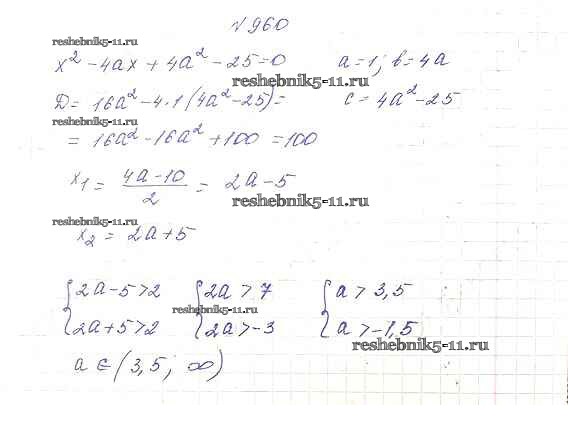 №960
reshebnik5-11.ru
x² - 4ax + 4a² - 25 = 0 a = 1; b = 4a
reshebnik5-11.ru
D = 16a² - 4·1(4a² - 25) = c = 4a² - 25
reshebnik5-11.ru
= 16a² - 16a² + 100 = 100
x₁ = (4a - 10)/2 = 2a - 5
reshebnik5-11.ru
reshebnik5-11.ru
x₂ = 2a + 5
{2a - 5 > 2 {2a > 7 {a > 3,5
reshebnik5-11.ru
{2a + 5 > 2 {2a > -3 {a > -1,5
reshebnik5-11.ru
a ∈ (3,5; ∞)